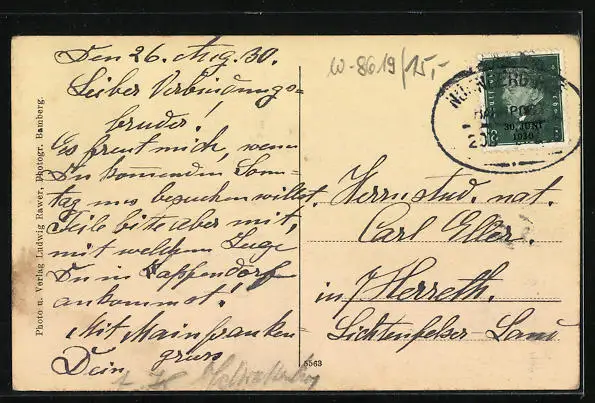 Den 26. Aug. 30.
Lieber Verbindungs-
bruder!
Es freut mich, wenn
Du kommenden Sonn-
tag uns besuchen willst.
Teile bitte aber mit,
mit welchem Zuge
Du in Lappendorf
ankommst!
Mit Mainfranken-
gruss
Dein
w-8619/15,-
NÜRNBERG
BAHNPOST
30. JUNI
1930
Herrn stud. nat.
Carl Eller.
in Herreth.
Lichtenfelser Land
Photo u. Verlag Ludwig Rawer, Photogr. Bamberg.
5563